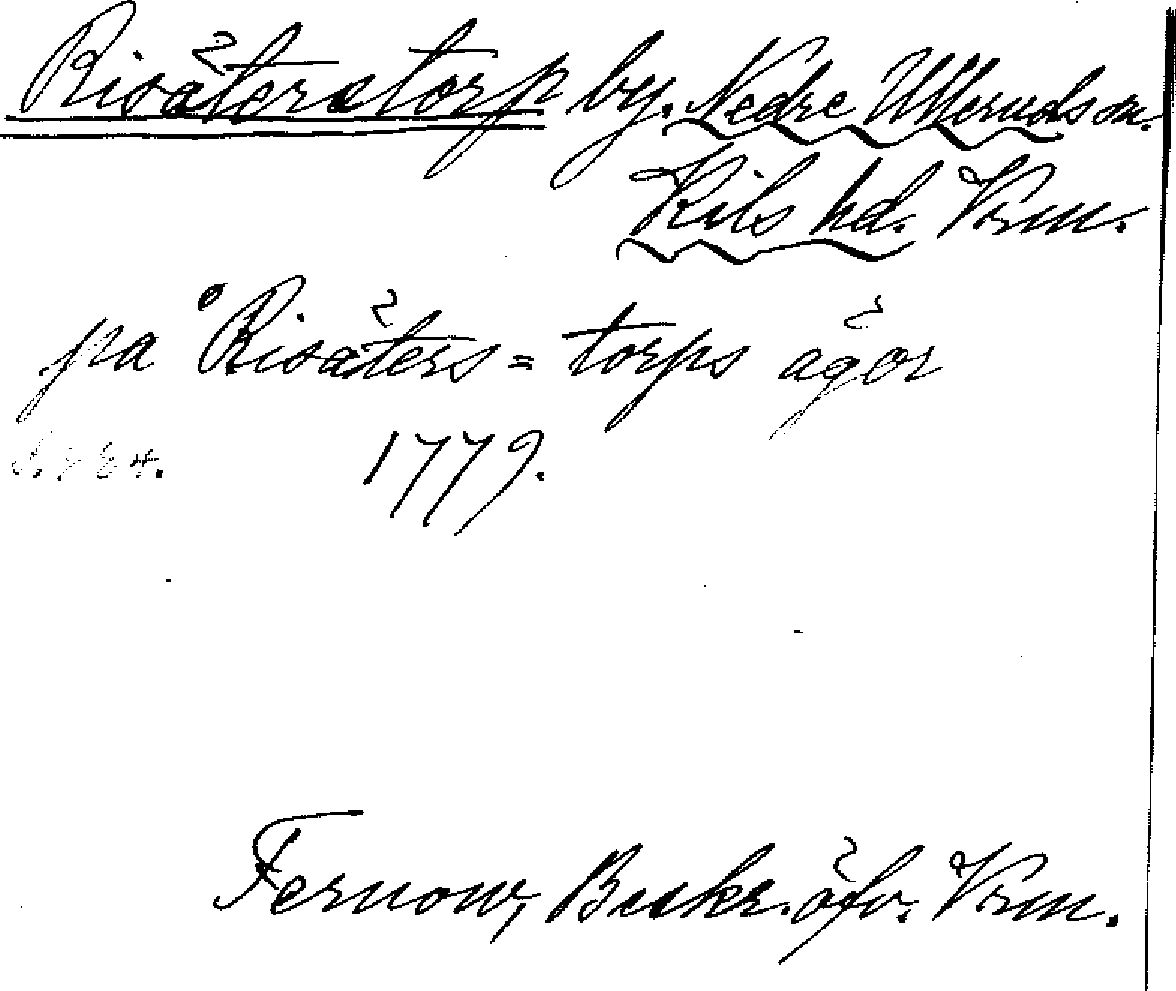 Risäterstorp by. Nedre Ulleruds sn.
Kils hd. Vrm.
på Risäters=torps ägor
1779.
Fernow, Beskr. öfv. Vrm.